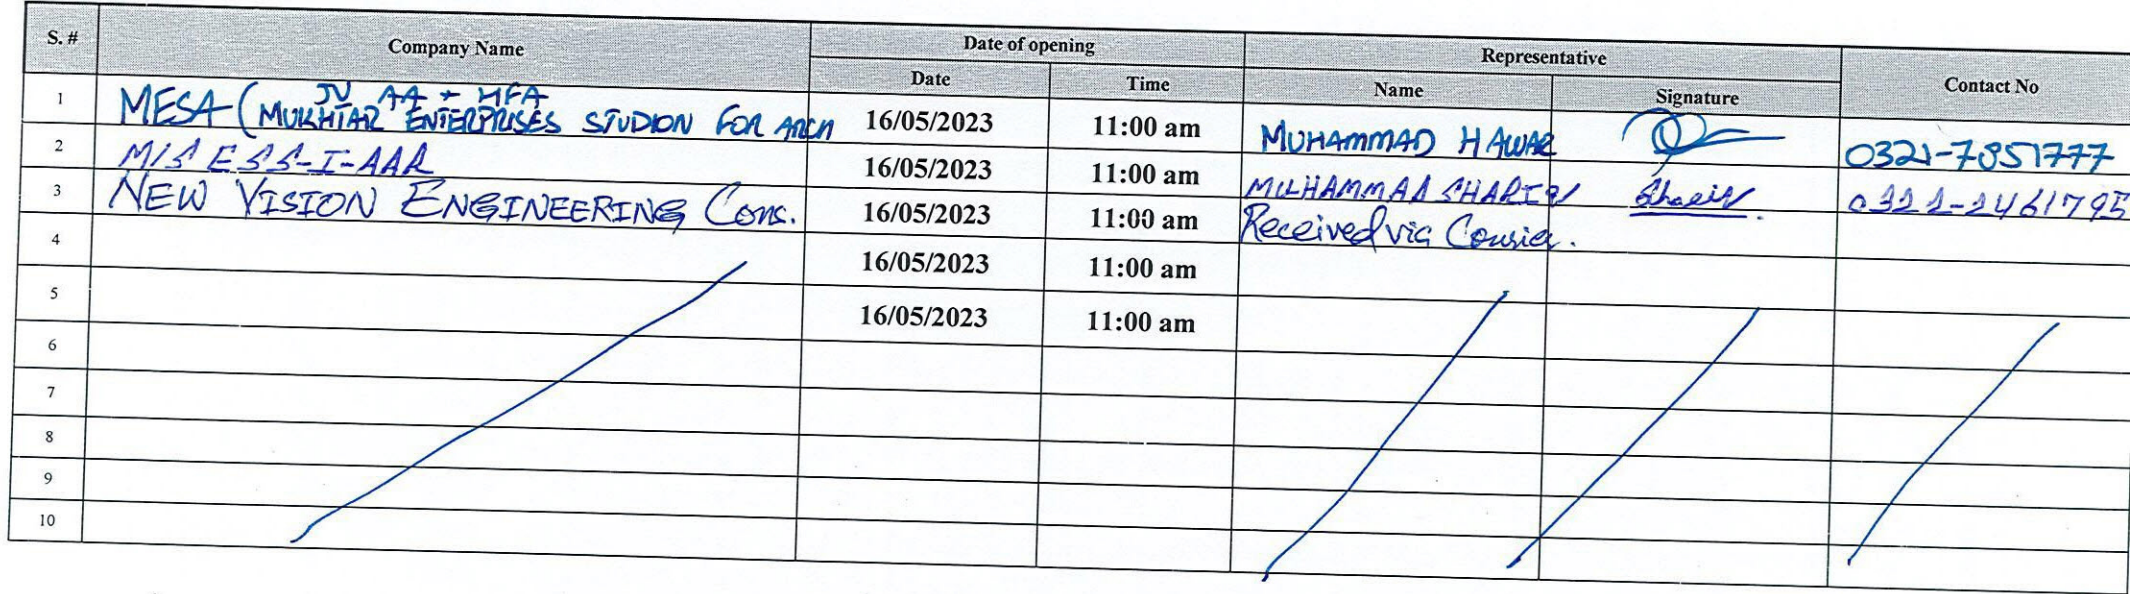 S. # Company Name Date of opening Representative Contact No
Date Time Name Signature
JV AA + HFA
1 MESA (MUKHTAR ENTERPRISES STUDION FOR ARCH 16/05/2023 11:00 am MUHAMMAD HAWAR 0321-7851777
2 M/S ESS-I-AAR 16/05/2023 11:00 am MUHAMMAD SHARIF Sharif 0322-2461795
3 NEW VISION ENGINEERING Cons. 16/05/2023 11:00 am Received via Courier.
4 16/05/2023 11:00 am
5 16/05/2023 11:00 am
6
7
8
9
10